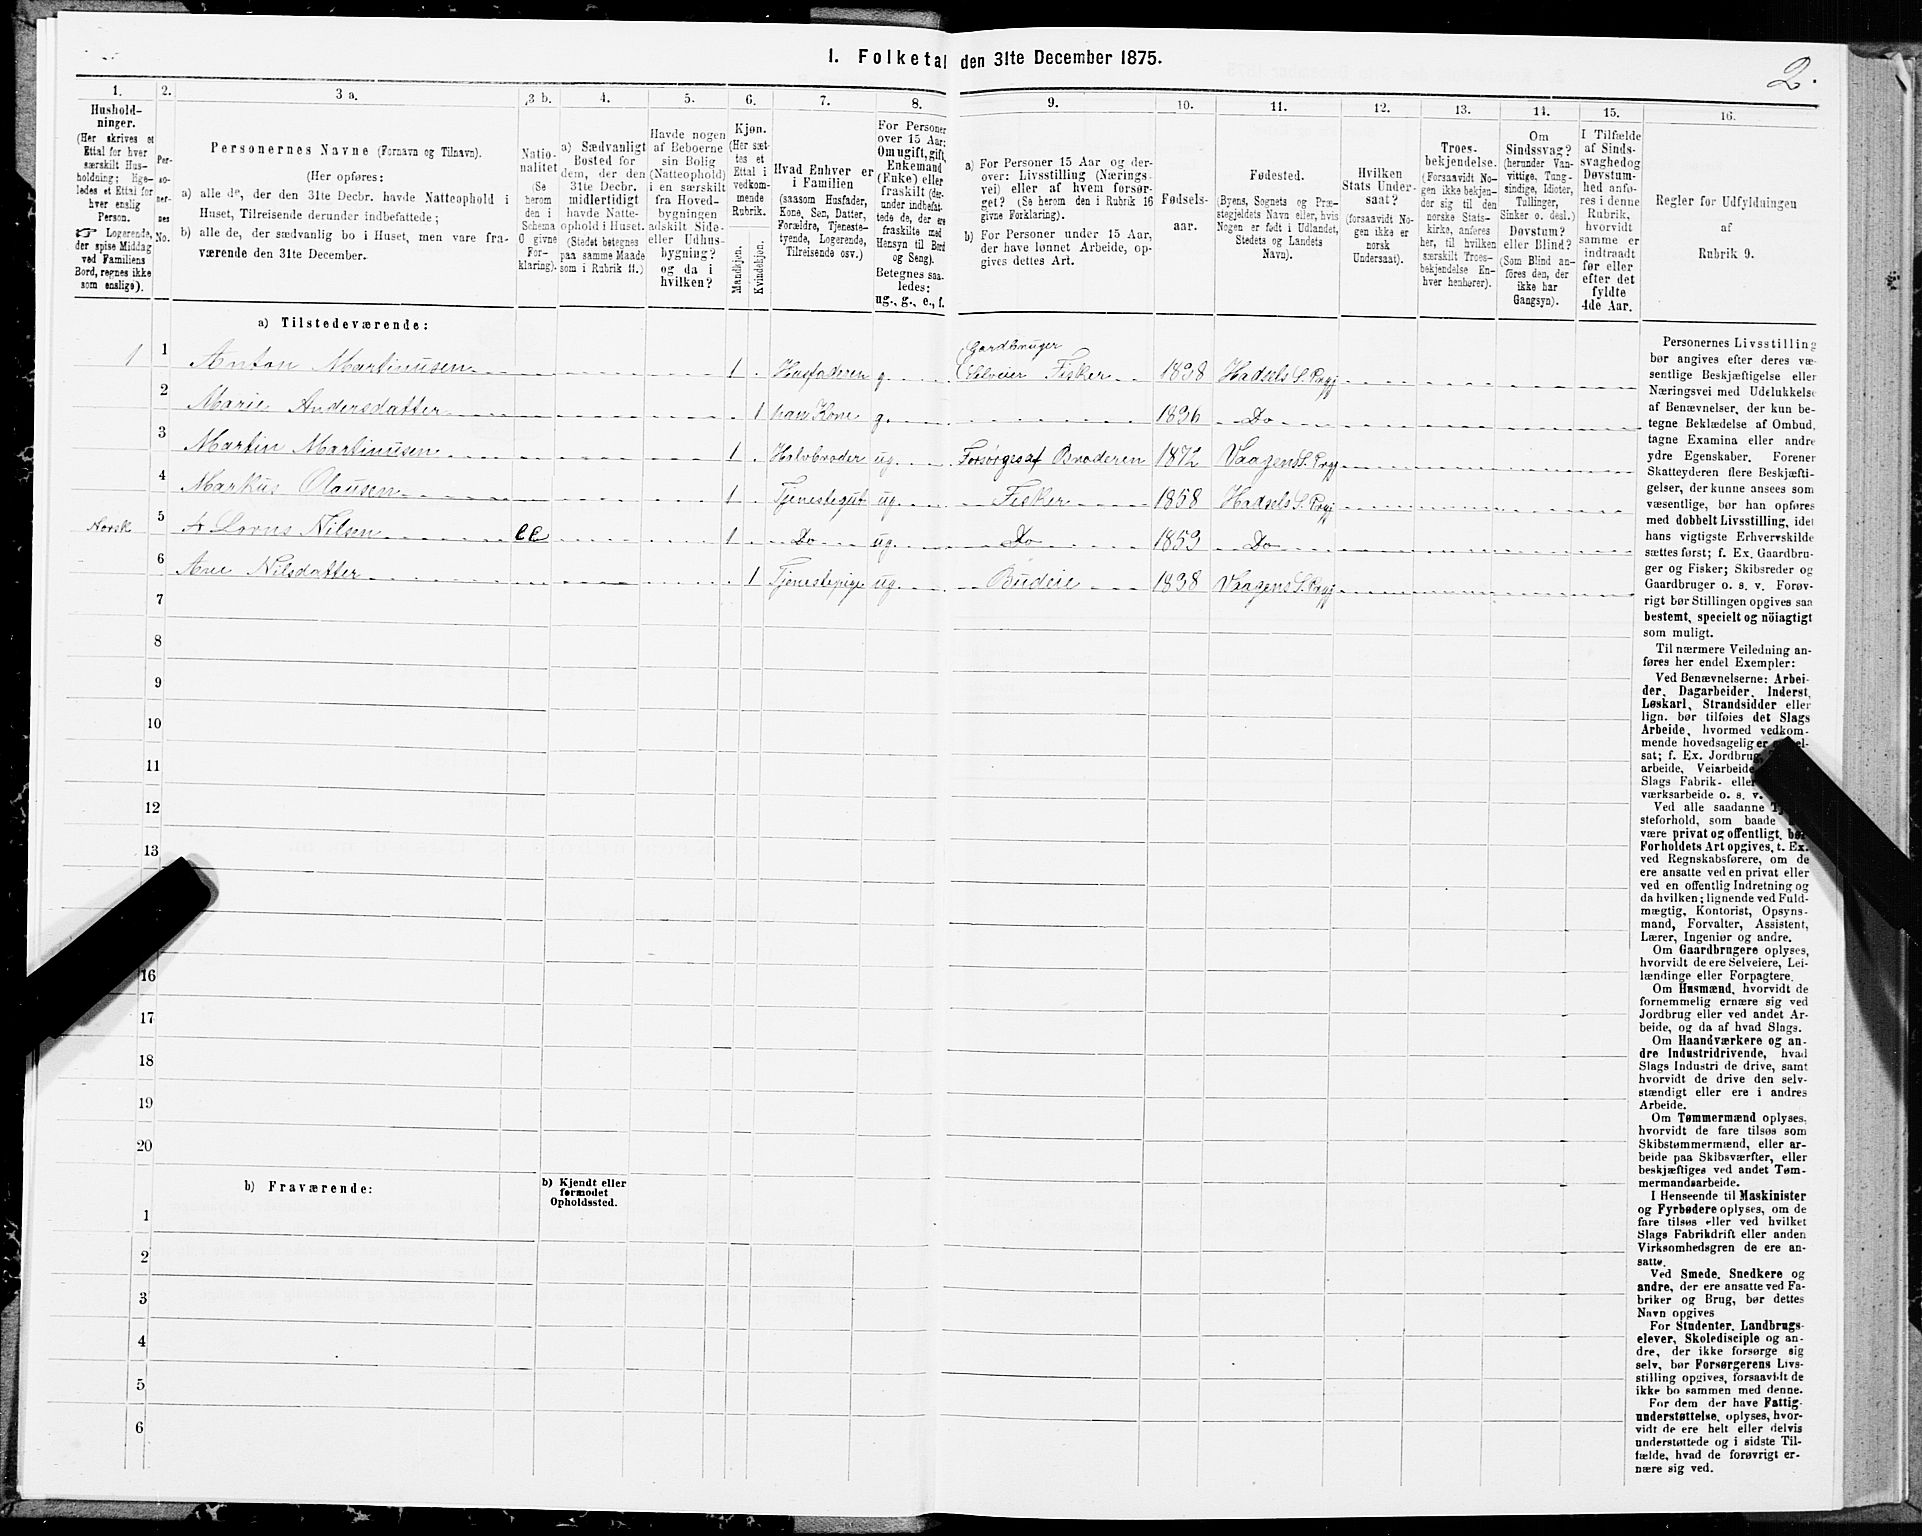 1. Folketal den 31te December 1875.
2.
1.
2.
3 a.
3 b.
4.
5.
6.
7.
8.
9.
10.
11.
12.
13.
14.
15.
16.
Hushold-
ninger.
(Her skrives et
Ettal for hver
særskilt Hus-
holdning; lige-
ledes et Ettal for
hver enslig
Person.
☞ Logerende,
der spise Middag
ved Familiens
Bord, regnes ikke
som enslige).
Per-
so-
ner-
nes
No.
Personernes Navne (Fornavn og Tilnavn).
(Her opføres:
a) alle de, der den 31te Decbr. havde Natteophold i
Huset, Tilreisende derunder indbefattede;
b) alle de, der sædvanlig bo i Huset, men vare fra-
værende den 31te December.
Natio-
nalitet
(Se
herom
den i
Schema
6 givne
For-
klaring).
a) Sædvanligt
Bosted for
dem, der den
31te Decbr.
midlertidigt
havde Natte-
ophold i Huset.
(Stedet betegnes
paa samme Maade
som i Rubrik 11.)
Havde nogen
af Beboerne
sin Bolig
(Natteophold)
i en særskilt
fra Hoved-
bygningen
adskilt Side-
eller Udhus-
bygning?
og da i
hvilken?
Kjøn.
(Her sæt-
tes et
Ettal i
vedkom-
mende
Rubrik.
Mandkjøn.
Kvindekjøn.
Hvad Enhver er
i Familien
(saasom Husfader,
Kone, Søn, Datter,
Forældre, Tjeneste-
tyende, Logerende,
Tilreisende osv.)
For Personer
over 15 Aar:
Om ugift, gift,
Enkemand
(Enke) eller
fraskilt (der-
under indbefat-
tede de, der ere
fraskilte med
Hensyn til Bord
og Seng).
Betegnes saa-
ledes:
ug., g., e., f.
a) For Personer 15 Aar og der-
over: Livsstilling (Nærings-
vei) eller af hvem forsør-
get? (Se herom den i Rubrik 16
givne Forklaring).
b) For Personer under 15 Aar,
der have lønnet Arbeide, op-
gives dettes Art.
Fødsels-
aar.
Fødested.
(Byens, Sognets og Præ-
stegjeldets Navn eller, hvis
Nogen er født i Udlandet,
Stedets og Landets
Navn).
Hvilken
Stats Under-
saat?
(forsaavidt No-
gen ikke er
norsk
Undersaat).
Troes-
bekjendelse.
(Forsaavidt No-
gen ikke bekjen-
der sig til den
norske Stats-
kirke, anføres
her, til hvilken
særskilt Troes-
bekjendelse En-
hver henhører).
Om
Sindssvag?
(herunder Van-
vittige, Tung-
sindige, Idioter,
Tullinger,
Sinker o. desl.)
Døvstum?
eller Blind?
(Som Blind an-
føres den, der
ikke har
Gangsyn).
I Tilfælde
af Sinds-
svaghedog
Døvstum-
hed anfø-
res i denne
Rubrik,
hvorvidt
samme er
indtraadt
før eller
efter det
fyldte
4de Aar.
Regler for Udfyldningen
af
Rubrik 9.
a) Tilstedeværende:
Gardbruger
1 1 Anton Martinusen 1 Husfaderen g. Selveier Fisker 1838 Hadsels S. Prgj
2 Marie Andersdatter 1 hans Kone g. 1836 Do
3 Martin Martinusen 1 Halvbroder ug. Forsørges af Broderen 1872 Vaagens S. Prgj
4 Markus Olausen 1 Tjenestegut ug. Fisker 1858 Hadsels S. Prgj
Norsk 5 Nilsen 1 Do ug. Do 1853 Do
6 Ane Nilsdatter 1 Tjenestepige ug. Budeie 1838 Vaagens S. Prgj
7
8
9
10
11
12
13
16
17
18
19
20
b) Fraværende:
b) Kjendt eller
formodet
Opholdssted.
1
2
3
4
5
6
Personernes Livsstilling
bør angives efter deres væ-
sentlige Beskjæftigelse eller
Næringsvei med Udelukkelse
af Benævnelser, der kun be-
tegne Beklædelse af Ombud,
tagne Examina eller andre
ydre Egenskaber. Forener
Skatteyderen flere Beskjæfti-
gelser, der kunne ansees som
væsentlige, bør han opføres
med dobbelt Livsstilling, idet
hans vigtigste Erhvervskilde
sættes først; f. Ex. Gaardbru-
ger og Fisker; Skibsreder og
Gaardbruger o. s. v. Forøv-
rigt bør Stillingen opgives saa
bestemt, specielt og nöiagtigt
som muligt.
Til nærmere Veiledning an-
føres her endel Exempler:
Ved Benævnelserne: Arbei-
der, Dagarbeider, Inderst,
Løskarl, Strandsidder eller
lign. bør tilføies det Slags
Arbeide, hvormed vedkom-
mende hovedsagelig er
sat; f. Ex. Jordbrug,
arbeide, Veiarbeide
Slags Fabrik- eller
værksarbeide o. s. v.
Ved alle saadanne
steforhold, som baade
være privat og offentligt, bør
Forholdets Art opgives, t. Ex.
ved Regnskabsførere, om de
ere ansatte ved en privat eller
ved en offentlig Indretning og
da hvilken; lignende ved Fuld-
mægtig, Kontorist, Opsyns-
mand, Forvalter, Assistent,
Lærer, Ingeniør og andre.
Om Gaardbrugere oplyses,
hvorvidt de ere Selveiere, Lei-
lændinge eller Forpagtere.
Om Husmænd, hvorvidt de
fornemmelig ernære sig ved
Jordbrug eller ved andet Ar-
beide, og da af hvad Slags.
Om Haandværkere og an-
dre Industridrivende, hvad
Slags Industri de drive, samt
hvorvidt de drive den selv-
stændigt eller ere i andres
Arbeide.
Om Tømmermænd oplyses,
hvorvidt de fare tilsøs som
Skibstømmermænd, eller ar-
beide paa Skibsværfter, eller
beskjæftiges ved andet Tøm-
mermandsarbeide.
I Henseende til Maskinister
og Fyrbødere oplyses, om de
fare tilsøs eller ved hvilket
Slags Fabrikdrift eller anden
Virksomhedsgren de ere an-
satte.
Ved Smede, Snedkere og
andre, der ere ansatte ved Fa-
briker og Brug, bør dettes
Navn opgives
For Studenter, Landbrugs-
elever, Skoledisciple og an-
dre, der ikke forsørge sig
selv, bør Forsørgerens Livs-
stilling opgives, forsaavidt de
ikke bo sammen med denne.
For dem der have Fattig-
understøttelse, oplyses, hvor-
vidt de ere helt eller delvis
understøttede og i sidste Til-
fælde, hvad de forøvrigt er-
nære sig ved.